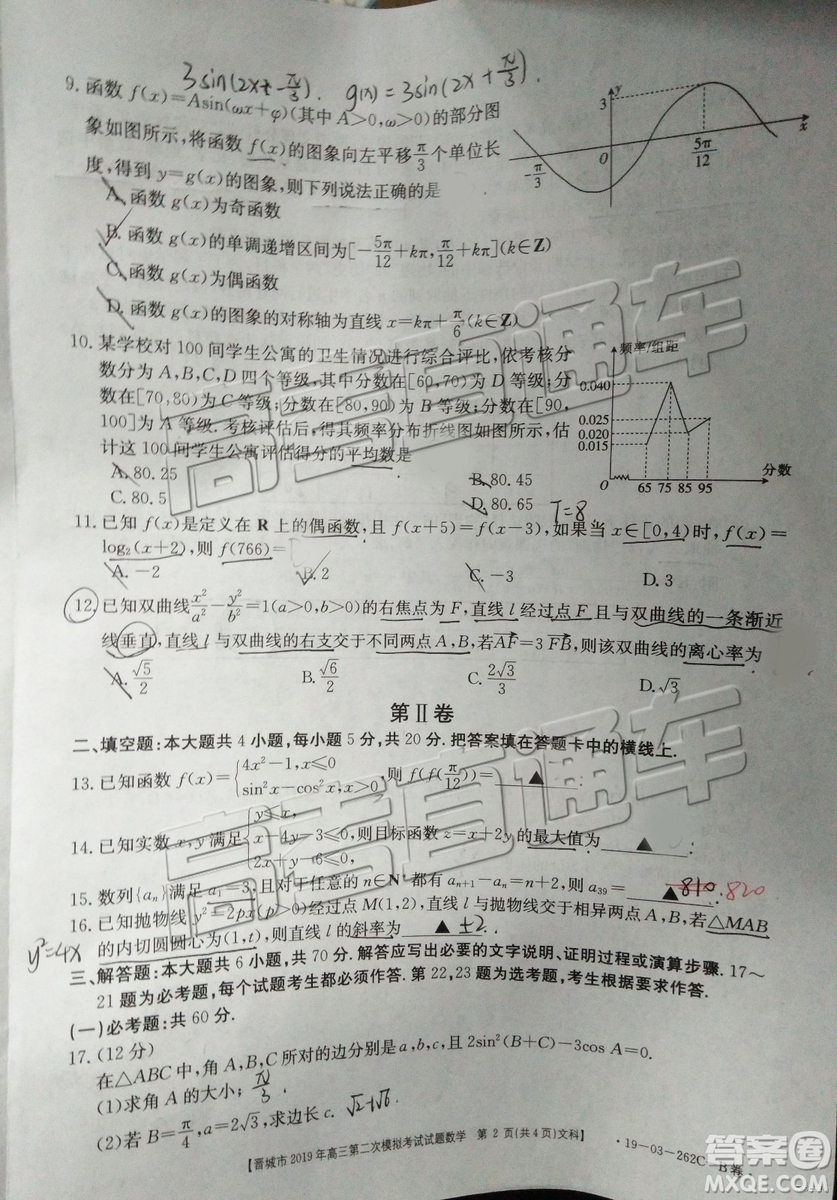 3sin(2x+-π/3). g(x)=3sin(2x+π/3).
9. 函数 f(x)=Asin(ωx+φ)(其中 A>0,ω>0)的部分图
象如图所示,将函数 f(x)的图象向左平移π/3个单位长
度,得到 y=g(x)的图象,则下列说法正确的是
A. 函数 g(x)为奇函数
B. 函数 g(x)的单调递增区间为[-5π/12+kπ,π/12+kπ](k∈Z)
C. 函数 g(x)为偶函数
D. 函数 g(x)的图象的对称轴为直线 x=kπ+π/6(k∈Z)
y
3
O
x
-π/3
5π/12
10. 某学校对 100 间学生公寓的卫生情况进行综合评比,依考核分
数分为 A,B,C,D 四个等级,其中分数在[60,70)为 D 等级;分
数在[70,80)为 C 等级;分数在[80,90)为 B 等级;分数在[90,
100]为 A 等级.考核评估后,得其频率分布折线图如图所示,估
计这 100 间学生公寓评估得分的平均数是
A. 80.25
B. 80.45
C. 80.5
D. 80.65
频率/组距
0.040
0.025
0.020
0.015
O
65 75 85 95
分数
T=8
11. 已知 f(x)是定义在 R 上的偶函数,且 f(x+5)=f(x-3),如果当 x∈[0,4)时,f(x)=
log₂(x+2),则 f(766)=
A. -2
B. 2
C. -3
D. 3
12. 已知双曲线x²/a²-y²/b²=1(a>0,b>0)的右焦点为 F,直线 l 经过点 F 且与双曲线的一条渐近
线垂直,直线 l 与双曲线的右支交于不同两点 A,B,若AF=3FB,则该双曲线的离心率为
A. √5/2
B. √6/2
C. 2√3/3
D. √3
第Ⅱ卷
二、填空题:本大题共 4 小题,每小题 5 分,共 20 分.把答案填在答题卡中的横线上.
13. 已知函数 f(x)={4x²-1,x≤0
sin²x-cos²x,x>0
,则 f(f(π/12))= ▲ .
14. 已知实数 x,y 满足{y≤x,
x-4y-3≤0,
2x+y-6≤0,
则目标函数 z=x+2y 的最大值为 ▲ .
15. 数列{aₙ}满足 a₁=3,且对于任意的 n∈N* 都有 aₙ₊₁-aₙ=n+2,则 a₃₉= ▲ . 810 820
16. 已知抛物线 y²=2px(p>0)经过点 M(1,2),直线与抛物线交于相异两点 A,B,若△MAB
的内切圆圆心为(1,t),则直线 l 的斜率为 ▲ . ±2.
y²=4x
三、解答题:本大题共 6 小题,共 70 分.解答应写出必要的文字说明、证明过程或演算步骤.17～
21 题为必考题,每个试题考生都必须作答.第 22,23 题为选考题,考生根据要求作答.
(一)必考题:共 60 分.
17. (12 分)
在△ABC 中,角 A,B,C 所对的边分别是 a,b,c,且 2sin²(B+C)-3cos A=0.
(1)求角 A 的大小; π/3
(2)若 B=π/4,a=2√3,求边长 c. √2+√6
【晋城市 2019 年高三第二次模拟考试试题数学 第 2 页(共 4 页)文科】
·19-03-262C· B卷
高考直通车
高考直通车
答案圈
MXQE.COM